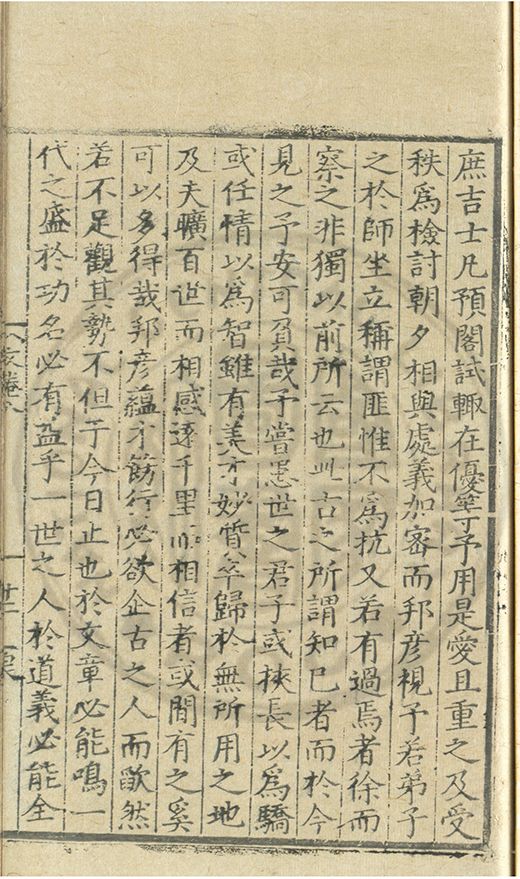 庶吉士凡預閣試輙在優等予用是愛且重之及受
秩爲檢討朝夕相與處義加審而邦彦視予若弟子
之於師坐立稱謂匪惟不爲抗又若有過焉者徐而
察之非獨以前所云也此古之所謂知已者而於今
見之予安可負哉予嘗慿世之君子或挾長以爲驕
或任情以爲智雖有美才妙質卒歸於無所用之地
及夫曠百世而相感逺千里而相信者或間有之奚
可以多得哉邦彦蘊才飭行必欲企古之人而歐然
若不足觀其勢不但于今日止也於文章必能鳴一
代之盛於功名必有益乎一世之人於道義必能全